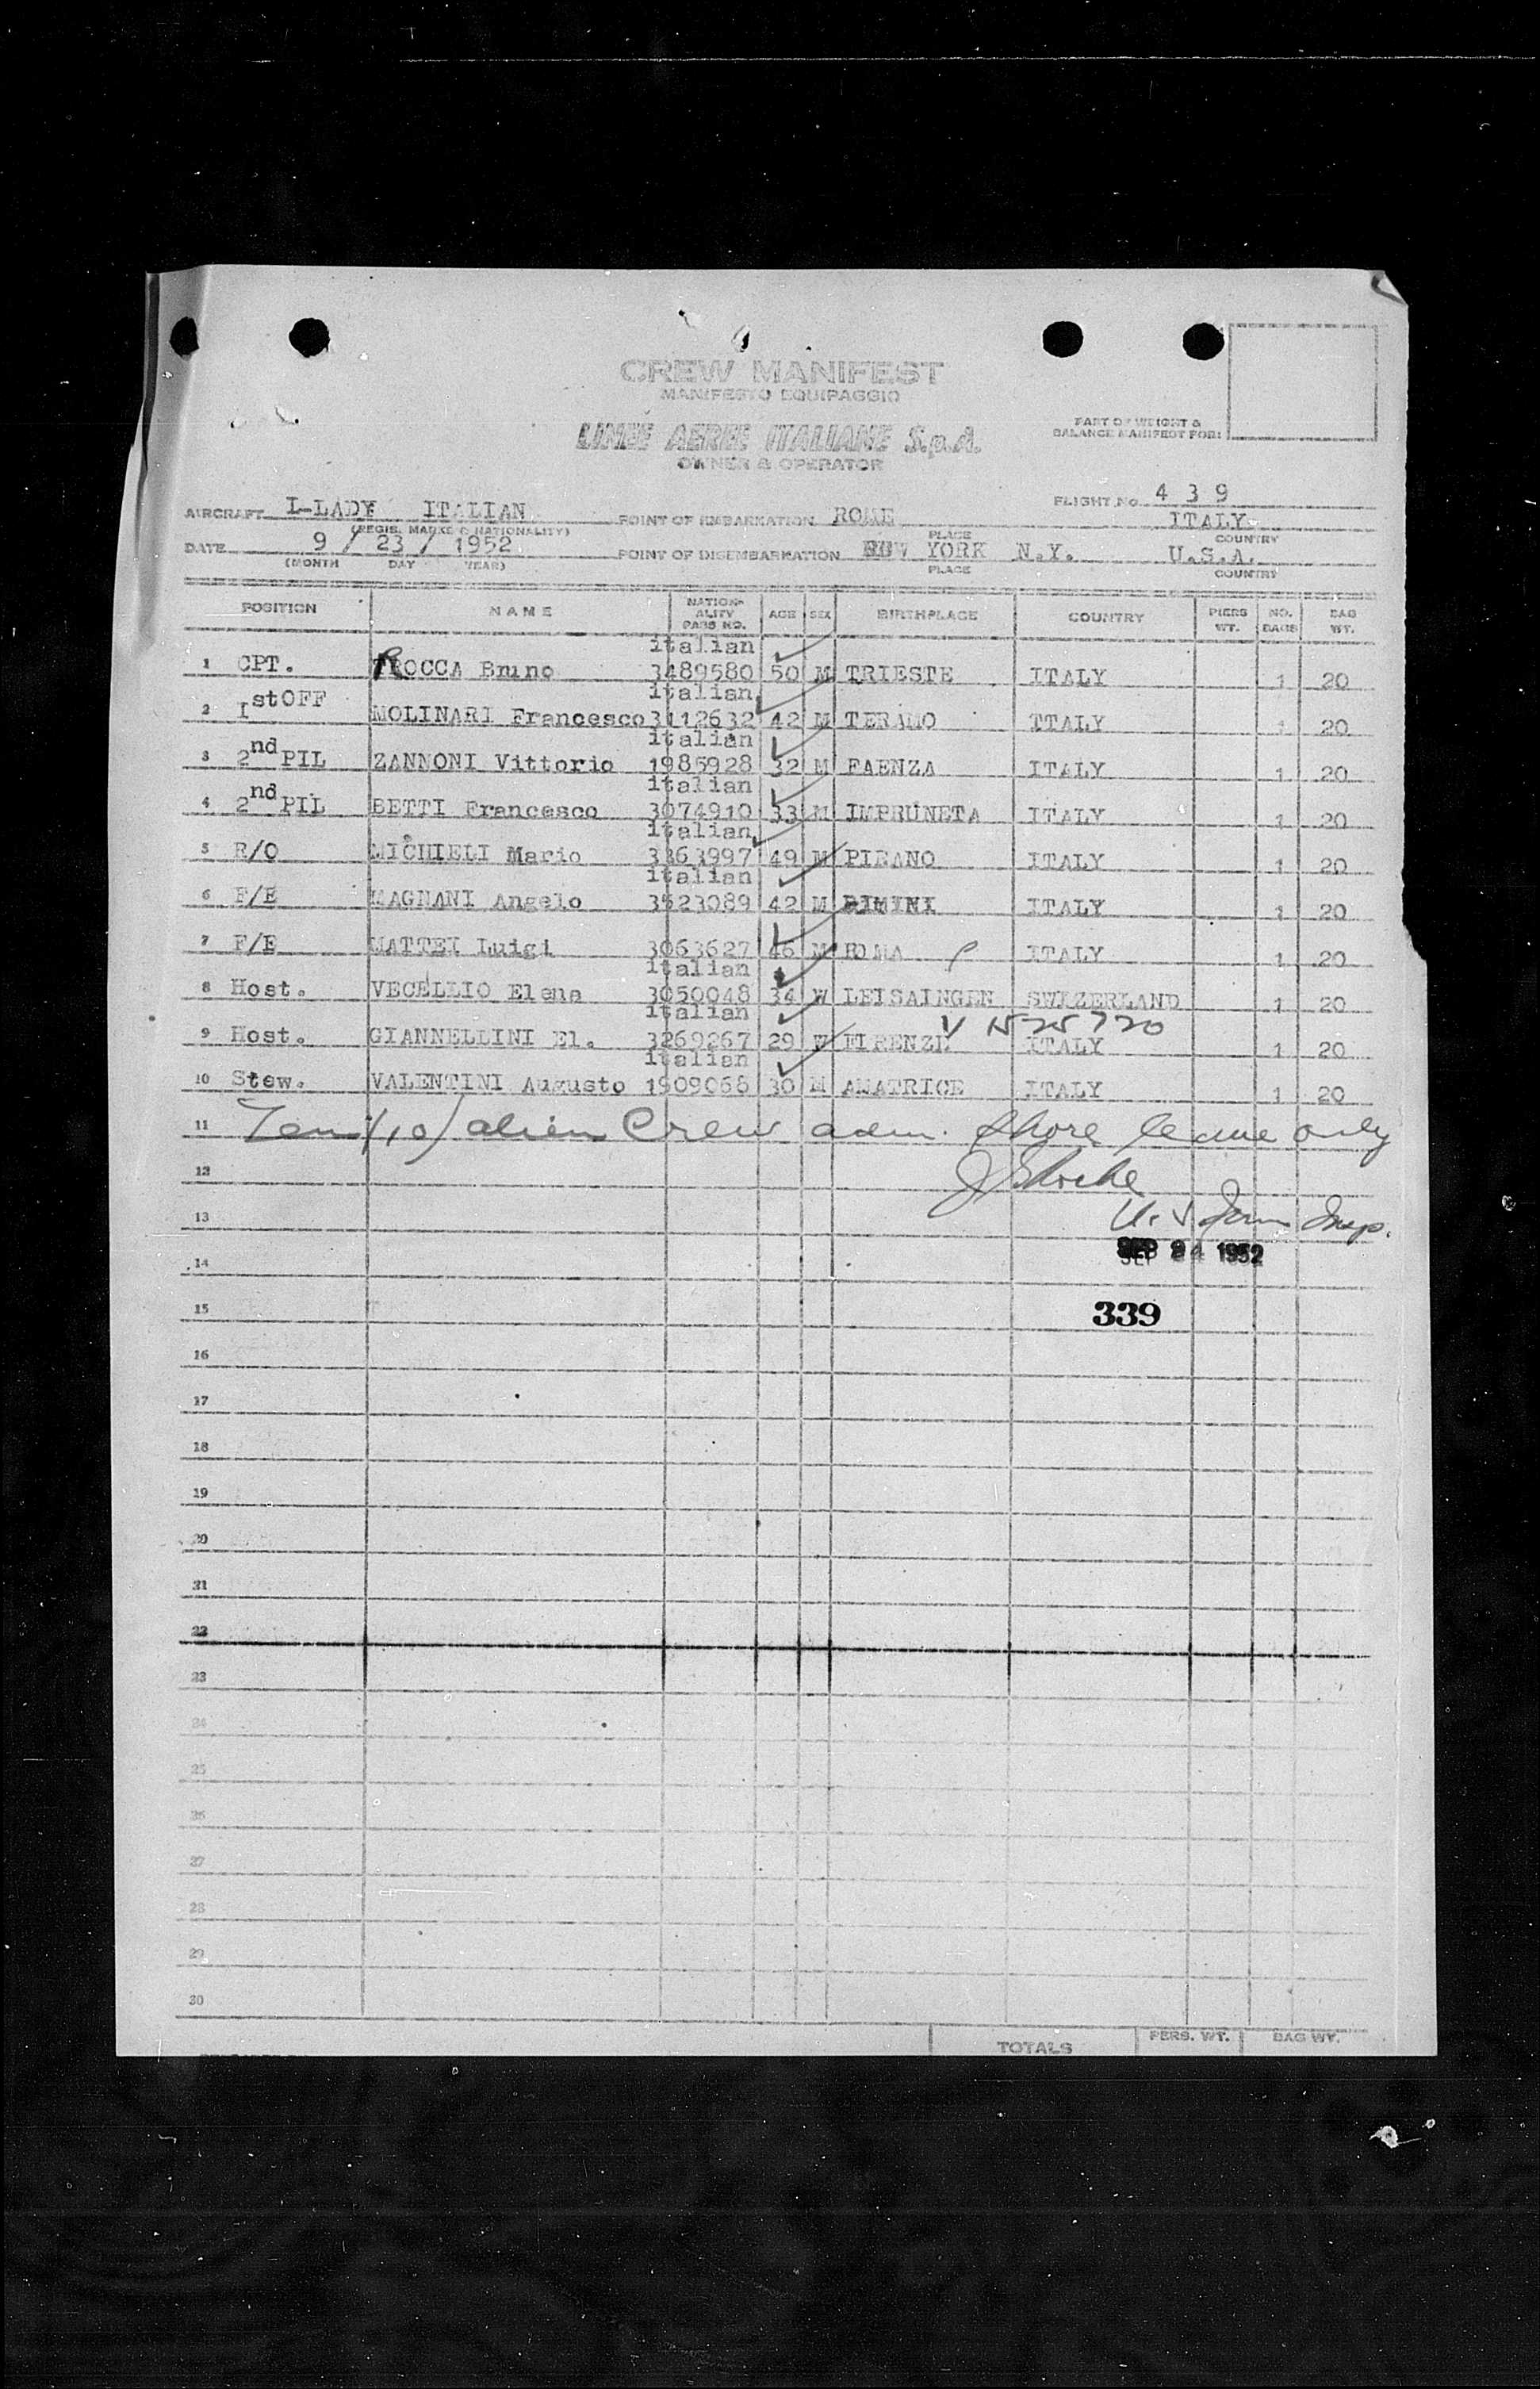 CREW MANIFEST
MANIFESTO EQUIPAGGIO
LINEE AEREE ITALIANE S.p.A.
OWNER & OPERATOR
PART OF WEIGHT &
BALANCE MANIFEST FOR:
AIRCRAFT I-LADY ITALIAN POINT OF EMBARKATION ROME ITALY FLIGHT No. 4 3 9
(REGIS. MARKS & NATIONALITY) PLACE COUNTRY
DATE 9 / 23 / 1952 POINT OF DISEMBARKATION NEW YORK N.Y. U.S.A.
(MONTH DAY YEAR) PLACE COUNTRY
POSITION NAME NATION-ALITY PASS NO. AGE SEX BIRTHPLACE COUNTRY PIERS WT. NO. BAGS BAG WT.
italian
1 CPT. ROCCA Bruno 3489580 50 M TRIESTE ITALY 1 20
italian
2 IstOFF MOLINARI Francesco 3112632 42 M TERAMO ITALY 1 20
italian
3 2nd PIL ZANNONI Vittorio 1985928 32 M FAENZA ITALY 1 20
italian
4 2nd PIL BETTI Francesco 3074910 33 M IMPRUNETA ITALY 1 20
italian
5 R/O MICHIELI Mario 3363997 49 M PIRANO ITALY 1 20
italian
6 F/E MAGNANI Angelo 3523089 42 M RIMINI ITALY 1 20
7 F/E MATTEI Luigi 3063627 46 M ROMA ITALY 1 20
italian
8 Host. VECELLIO Elena 3050048 34 W LEISAINGEN SWIZERLAND 1 20
italian V 1525720
9 Host. GIANNELLINI El. 3269267 29 W FIRENZE ITALY 1 20
italian
10 Stew. VALENTINI Augusto 1909068 30 M AMATRICE ITALY 1 20
11 Ten (10) alien Crew adm. shore leave only
12
13 U. S. Imm Insp.
14 SEP 24 1952
15 339
16
17
18
19
20
21
22
23
24
25
26
27
28
29
30
TOTALS PERS. WT. BAG WT.